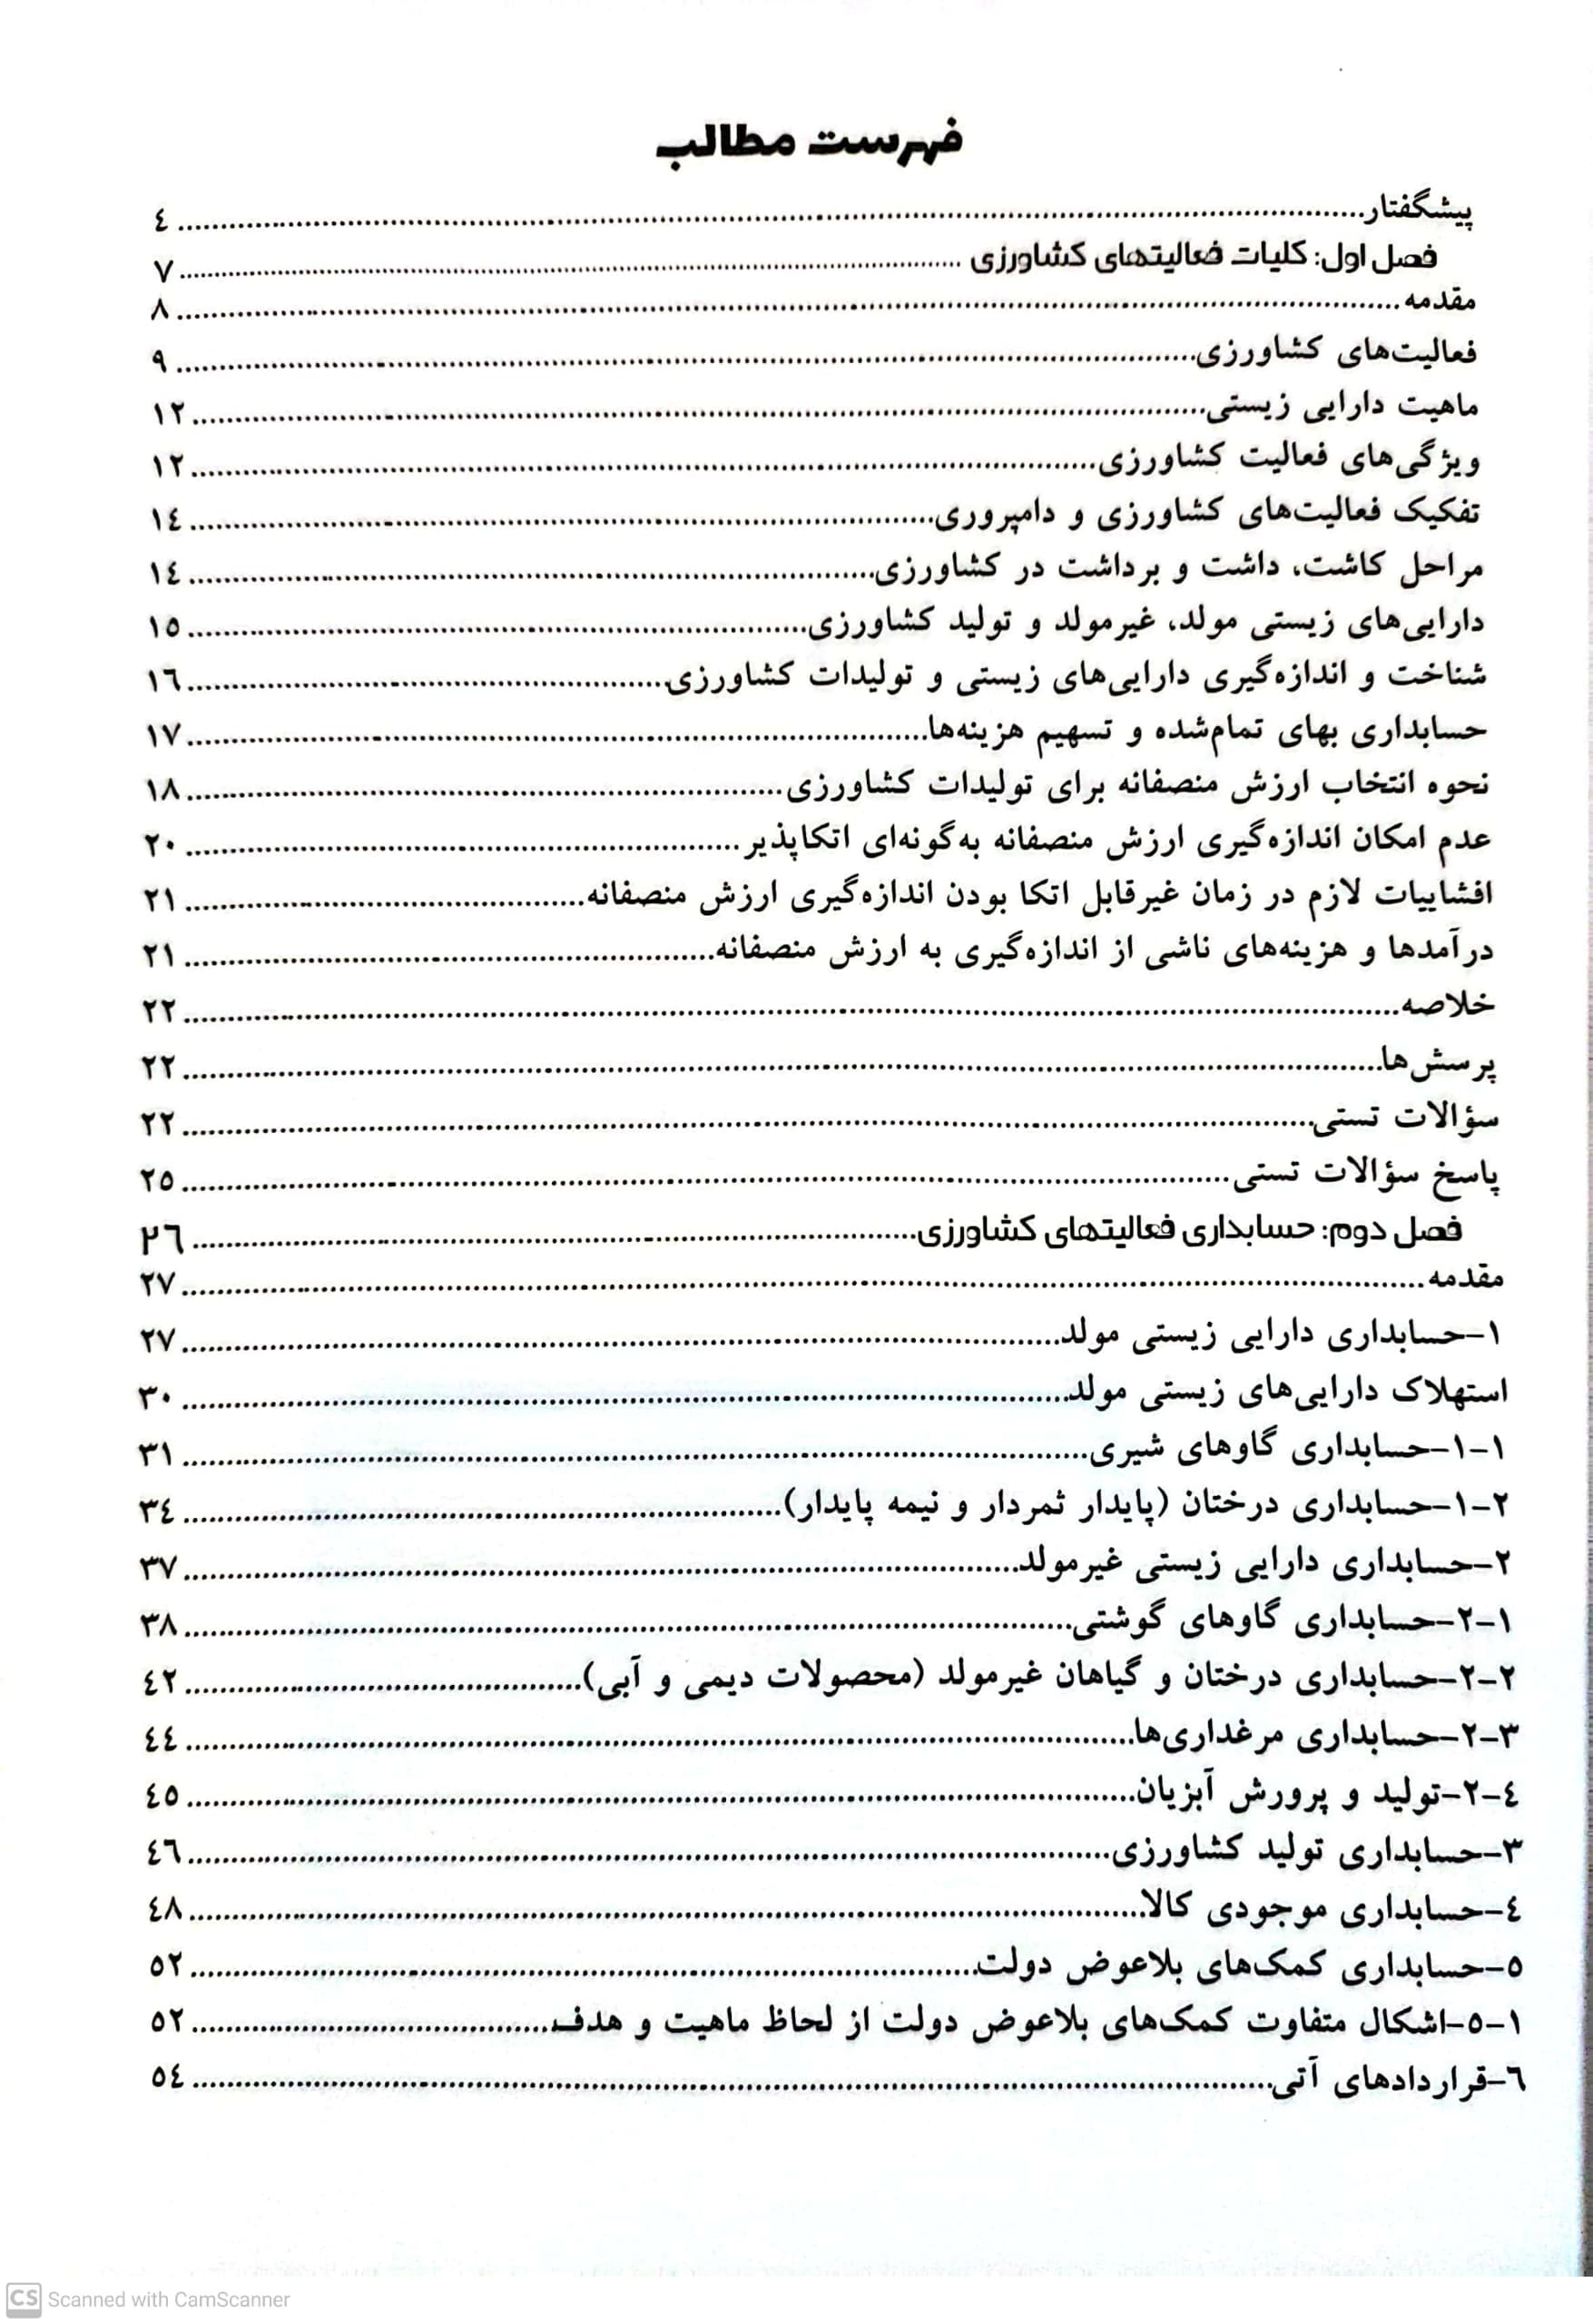 فهرست مطالب
پیشگفتار ........ ٤
فصل اول: کلیات فعالیتهای کشاورزی ........ ۷
مقدمه ........ ۸
فعالیت‌های کشاورزی ........ ۹
ماهیت دارایی زیستی ........ ۱۲
ویژگی‌های فعالیت کشاورزی ........ ۱۲
تفکیک فعالیت‌های کشاورزی و دامپروری ........ ۱٤
مراحل کاشت، داشت و برداشت در کشاورزی ........ ۱٤
دارایی‌های زیستی مولد، غیرمولد و تولید کشاورزی ........ ۱٥
شناخت و اندازه‌گیری دارایی‌های زیستی و تولیدات کشاورزی ........ ۱٦
حسابداری بهای تمام‌شده و تسهیم هزینه‌ها ........ ۱۷
نحوه انتخاب ارزش منصفانه برای تولیدات کشاورزی ........ ۱۸
عدم امکان اندازه‌گیری ارزش منصفانه به‌گونه‌ای اتکاپذیر ........ ۲۰
افشاییات لازم در زمان غیرقابل اتکا بودن اندازه‌گیری ارزش منصفانه ........ ۲۱
درآمدها و هزینه‌های ناشی از اندازه‌گیری به ارزش منصفانه ........ ۲۱
خلاصه ........ ۲۲
پرسش‌ها ........ ۲۲
سؤالات تستی ........ ۲۲
پاسخ سؤالات تستی ........ ۲٥
فصل دوم: حسابداری فعالیتهای کشاورزی ........ ۲٦
مقدمه ........ ۲۷
۱-حسابداری دارایی زیستی مولد ........ ۲۷
استهلاک دارایی‌های زیستی مولد ........ ۳۰
۱-۱-حسابداری گاوهای شیری ........ ۳۱
۲-۱-حسابداری درختان (پایدار ثمردار و نیمه پایدار) ........ ۳٤
۲-حسابداری دارایی زیستی غیرمولد ........ ۳۷
۱-۲-حسابداری گاوهای گوشتی ........ ۳۸
۲-۲-حسابداری درختان و گیاهان غیرمولد (محصولات دیمی و آبی) ........ ٤۲
۳-۲-حسابداری مرغداری‌ها ........ ٤٤
٤-۲-تولید و پرورش آبزیان ........ ٤٥
۳-حسابداری تولید کشاورزی ........ ٤٦
٤-حسابداری موجودی کالا ........ ٤۸
٥-حسابداری کمک‌های بلاعوض دولت ........ ٥۲
۱-٥-اشکال متفاوت کمک‌های بلاعوض دولت از لحاظ ماهیت و هدف ........ ٥۲
٦-قراردادهای آتی ........ ٥٤
CS Scanned with CamScanner